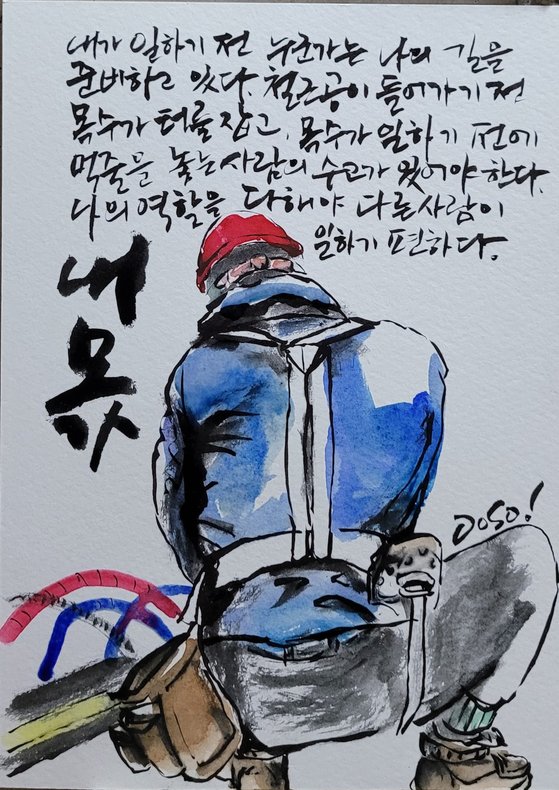 내가 일하기 전 누군가는 나의 길을
준비하고 있다. 철근공이 들어가기 전
목수가 터를 잡고, 목수가 일하기 전에
먹줄을 놓는 사람의 수고가 있어야 한다.
나의 역할을 다해야 다른 사람이
일하기 편하다.
내
몫
DOSO!